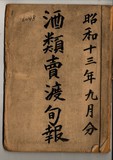 昭和十三年九月分
酒類賣渡旬報